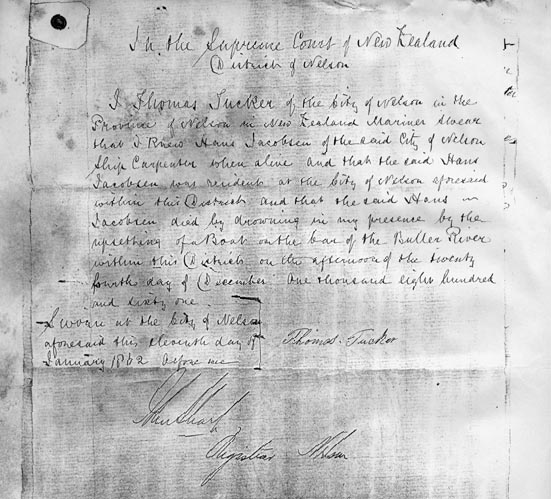 In the Supreme Court of New Zealand
District of Nelson
I Thomas Tucker of the City of Nelson in the
Province of Nelson in New Zealand Mariner swear
that I knew Hans Jacobsen of the said City of Nelson
Ship Carpenter when alive and that the said Hans
Jacobsen was resident at the City of Nelson aforesaid
within this District and that the said Hans
Jacobsen died by drowning in my presence by the
upsetting of a Boat on the bar of the Buller River
within this District on the afternoon of the twenty
fourth day of December one thousand eight hundred
and sixty one
Sworn at the City of Nelson
aforesaid this eleventh day of
January 1862 before me
Thomas Tucker
John Sharp
Registrar Nelson